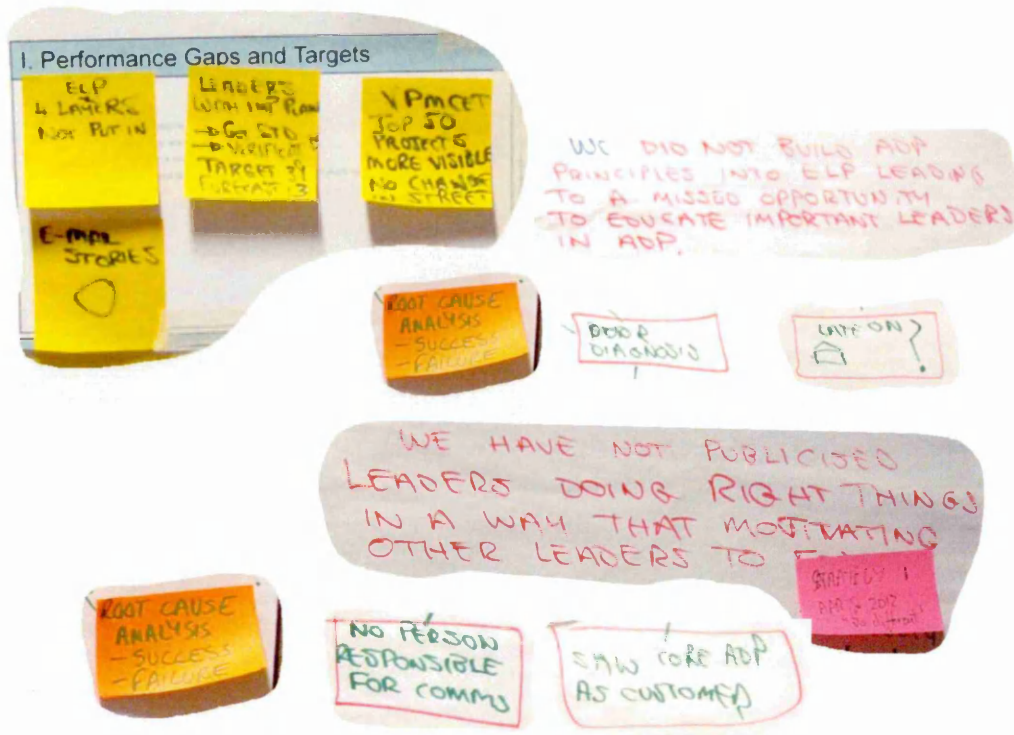 I. Performance Gaps and Targets
ELP
4 LAYERS
NOT PUT IN
LEADERS
WITH IMP PLAN
→ GET STD
→
TARGET 39
FORECAST 13
VPMCET
TOP 50
PROJECTS
MORE VISIBLE
NO CHANGE
IN STREET
E-MAIL
STORIES
WE DID NOT BUILD ADP
PRINCIPLES INTO ELP LEADING
TO A MISSED OPPORTUNITY
TO EDUCATE IMPORTANT LEADERS
IN ADP.
ROOT CAUSE
ANALYSIS
- SUCCESS
- FAILURE
POOR
DIAGNOSIS
LATE ON
?
WE HAVE NOT PUBLICISED
LEADERS DOING RIGHT THINGS
IN A WAY THAT MOTIVATING
OTHER LEADERS TO
STRATEGY 1
2012
ROOT CAUSE
ANALYSIS
- SUCCESS
- FAILURE
NO PERSON
RESPONSIBLE
FOR COMMS
SAW CORE ADP
AS CUSTOMER